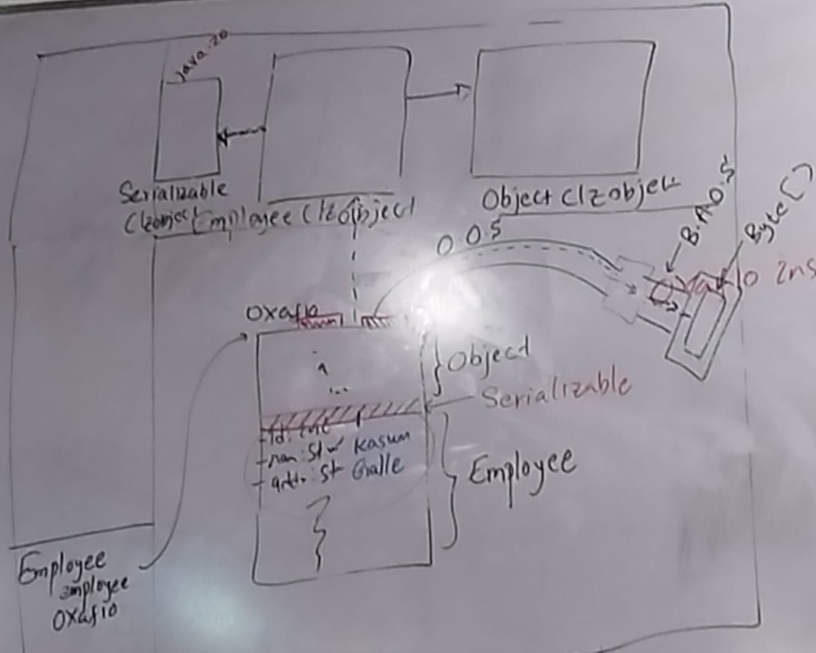 java.io
Serializable
Clzobject
Employee Clzobject
Object Clzobject
O.O.S
B.A.O.S
Byte[]
0xaf10 ins
0xaf10
Object
Serializable
-Id: int
-nam: St Kasun
-add: St Galle
Employee
Employee
employee
0xaf10